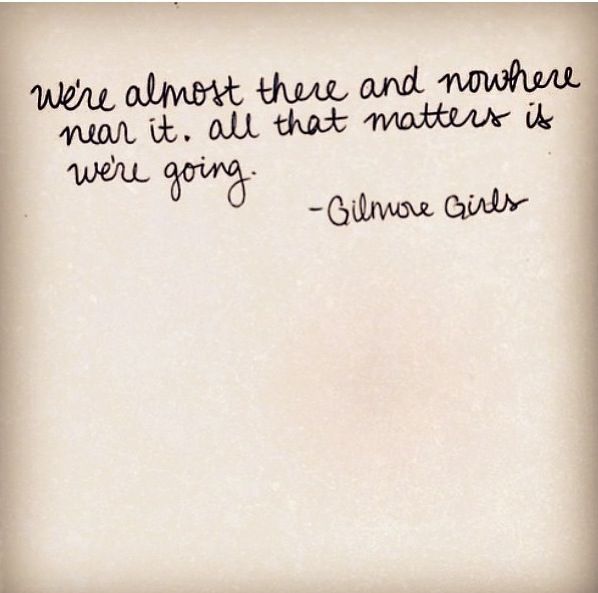 we're almost there and nowhere
near it. all that matters is
we're going.
-Gilmore Girls